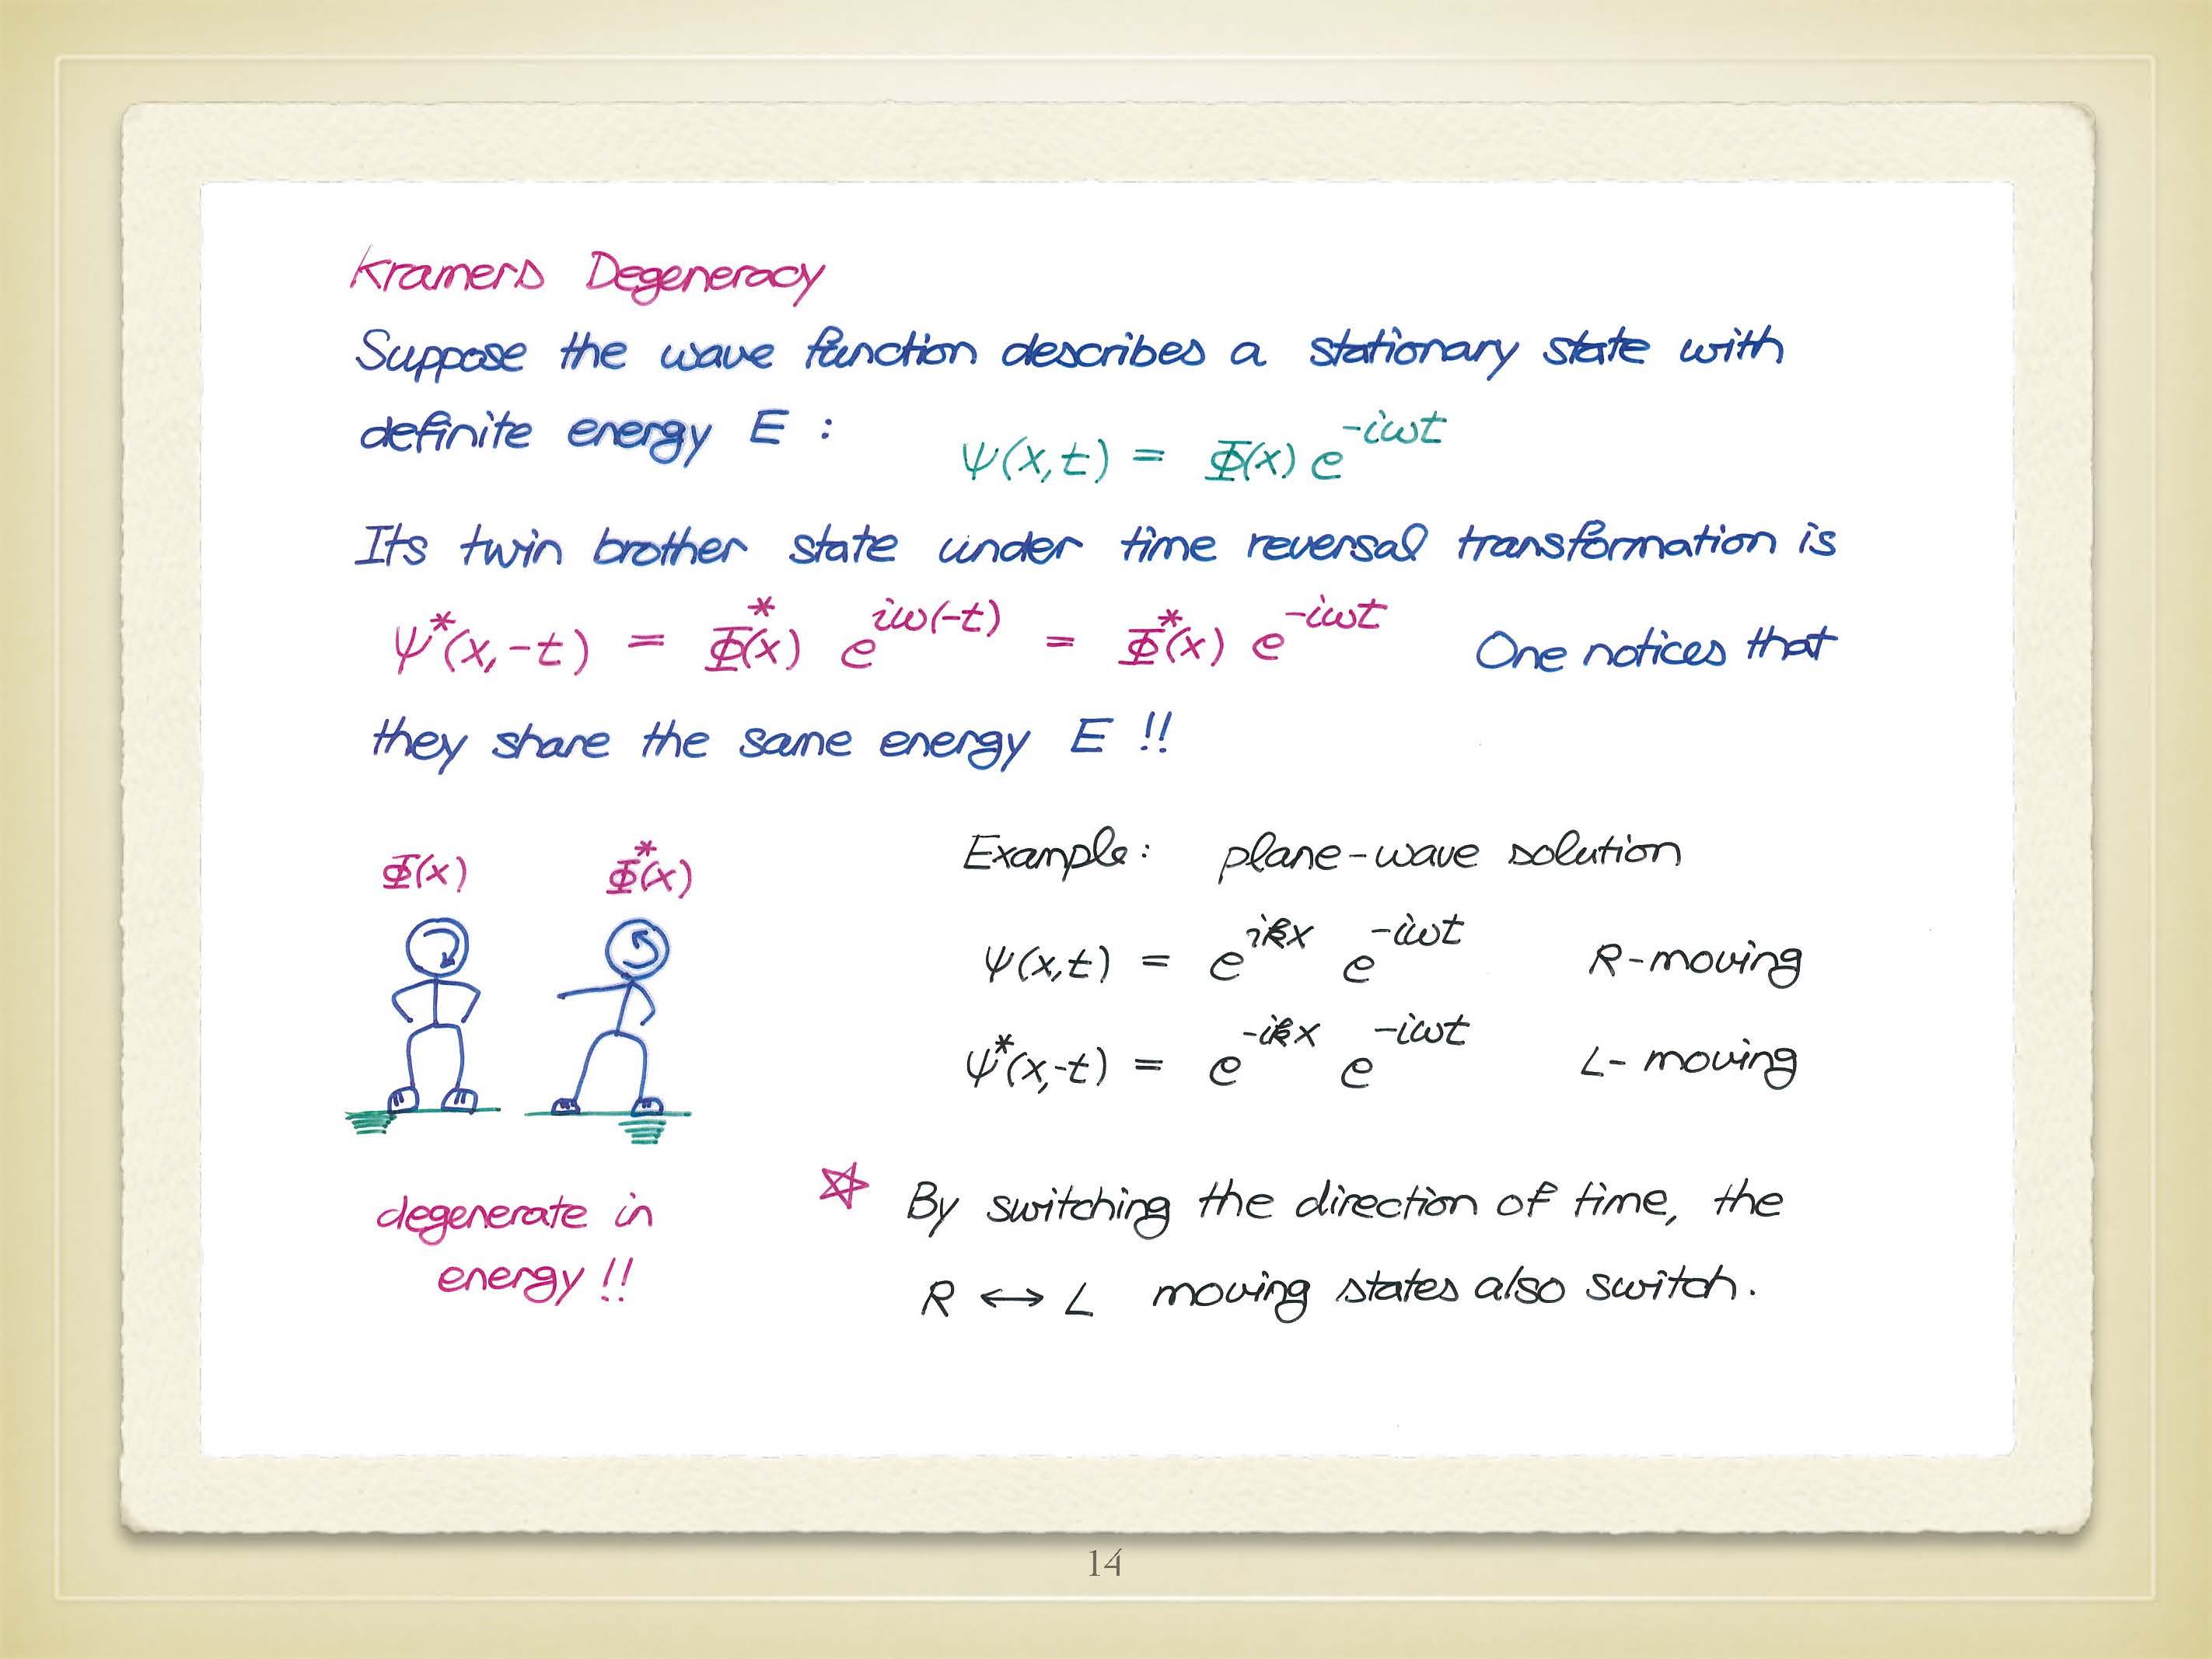 Kramers Degeneracy
Suppose the wave function describes a stationary state with
definite energy E : ψ(x,t) = Φ(x) e^{-iωt}
Its twin brother state under time reversal transformation is
ψ*(x,-t) = Φ*(x) e^{iω(-t)} = Φ*(x) e^{-iωt} One notices that
they share the same energy E !!
Φ(x) Φ*(x)
degenerate in
energy !!
Example: plane-wave solution
ψ(x,t) = e^{ikx} e^{-iωt} R-moving
ψ*(x,-t) = e^{-ikx} e^{-iωt} L-moving
☆ By switching the direction of time, the
R ↔ L moving states also switch.
14